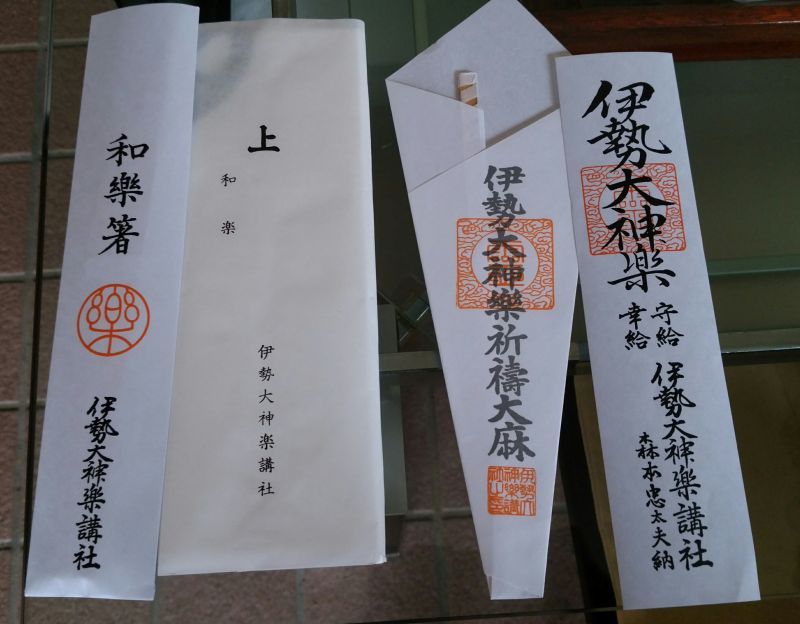 和樂箸
樂
伊勢大神樂講社
上
和楽
伊勢大神楽講社
伊勢大神樂祈禱大麻
伊勢大神樂講社之章
伊勢大神樂
守給
幸給
伊勢大神樂講社
森本忠太夫納